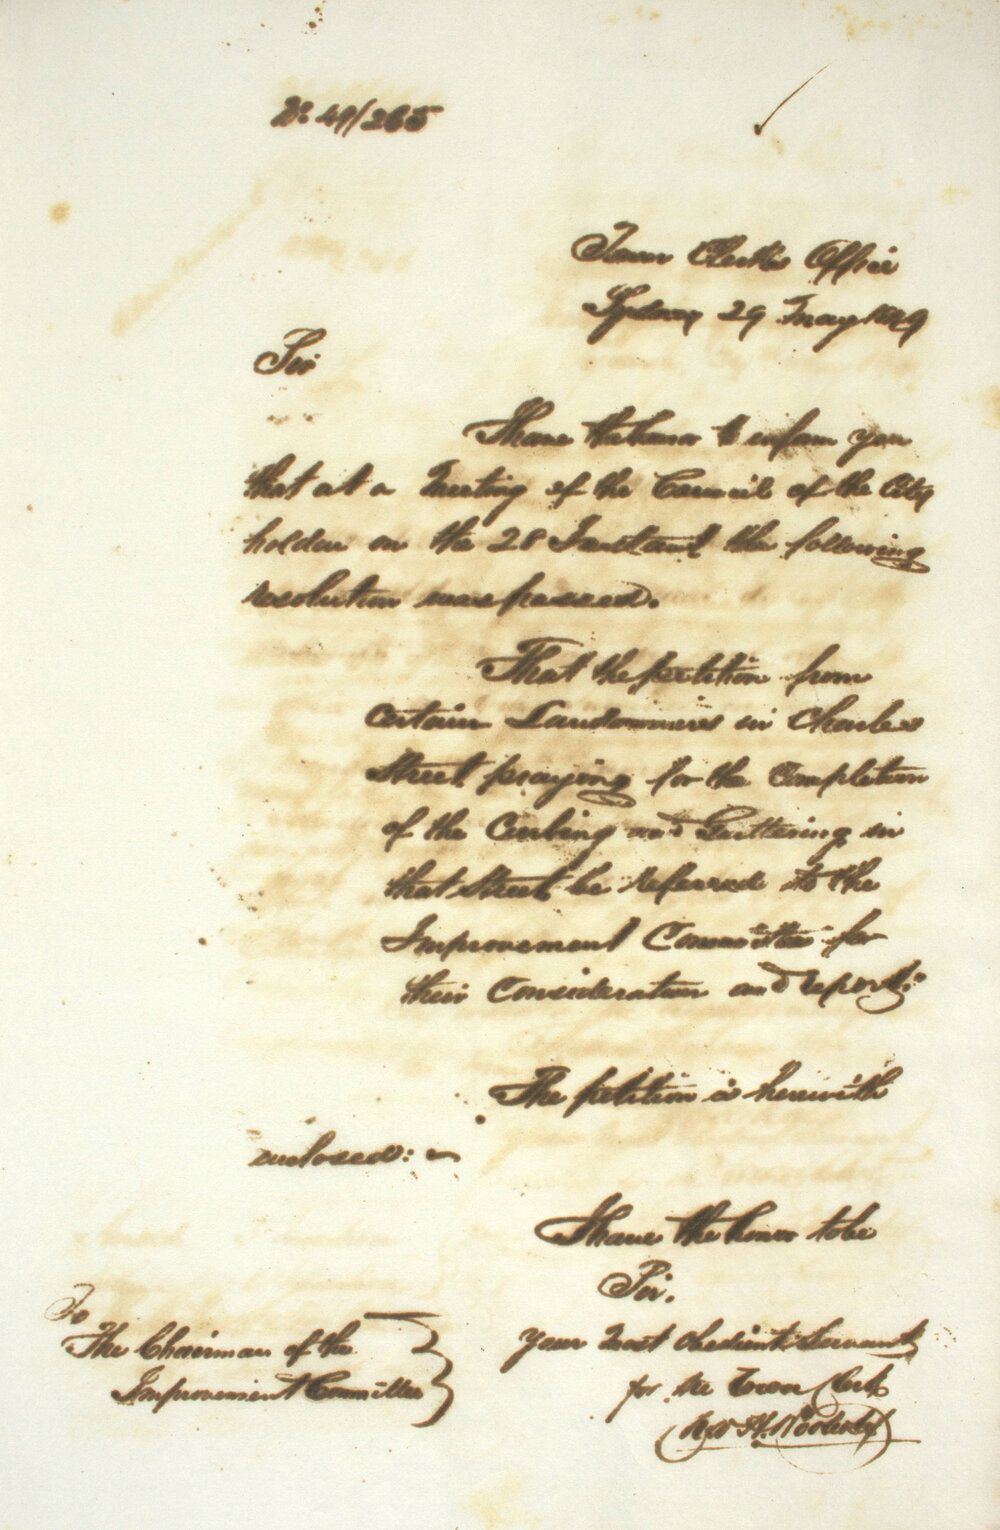 No. 49/265
Town Clerks Office
Sydney 29 May 1849
Sir
I have the honor to inform you
that at a Meeting of the Council of the City
holden on the 28 Instant the following
resolution was passed.
That the petition from
certain Landowners in Charles
Street praying for the Completion
of the Curbing and Guttering in
that Street be referred to the
Improvement Committee for
their Consideration and report:
The petition is herewith
enclosed:
I have the honor to be
Sir,
Your Most Obedient Servant
for the Town Clerk
To
The Chairman of the
Improvement Committee